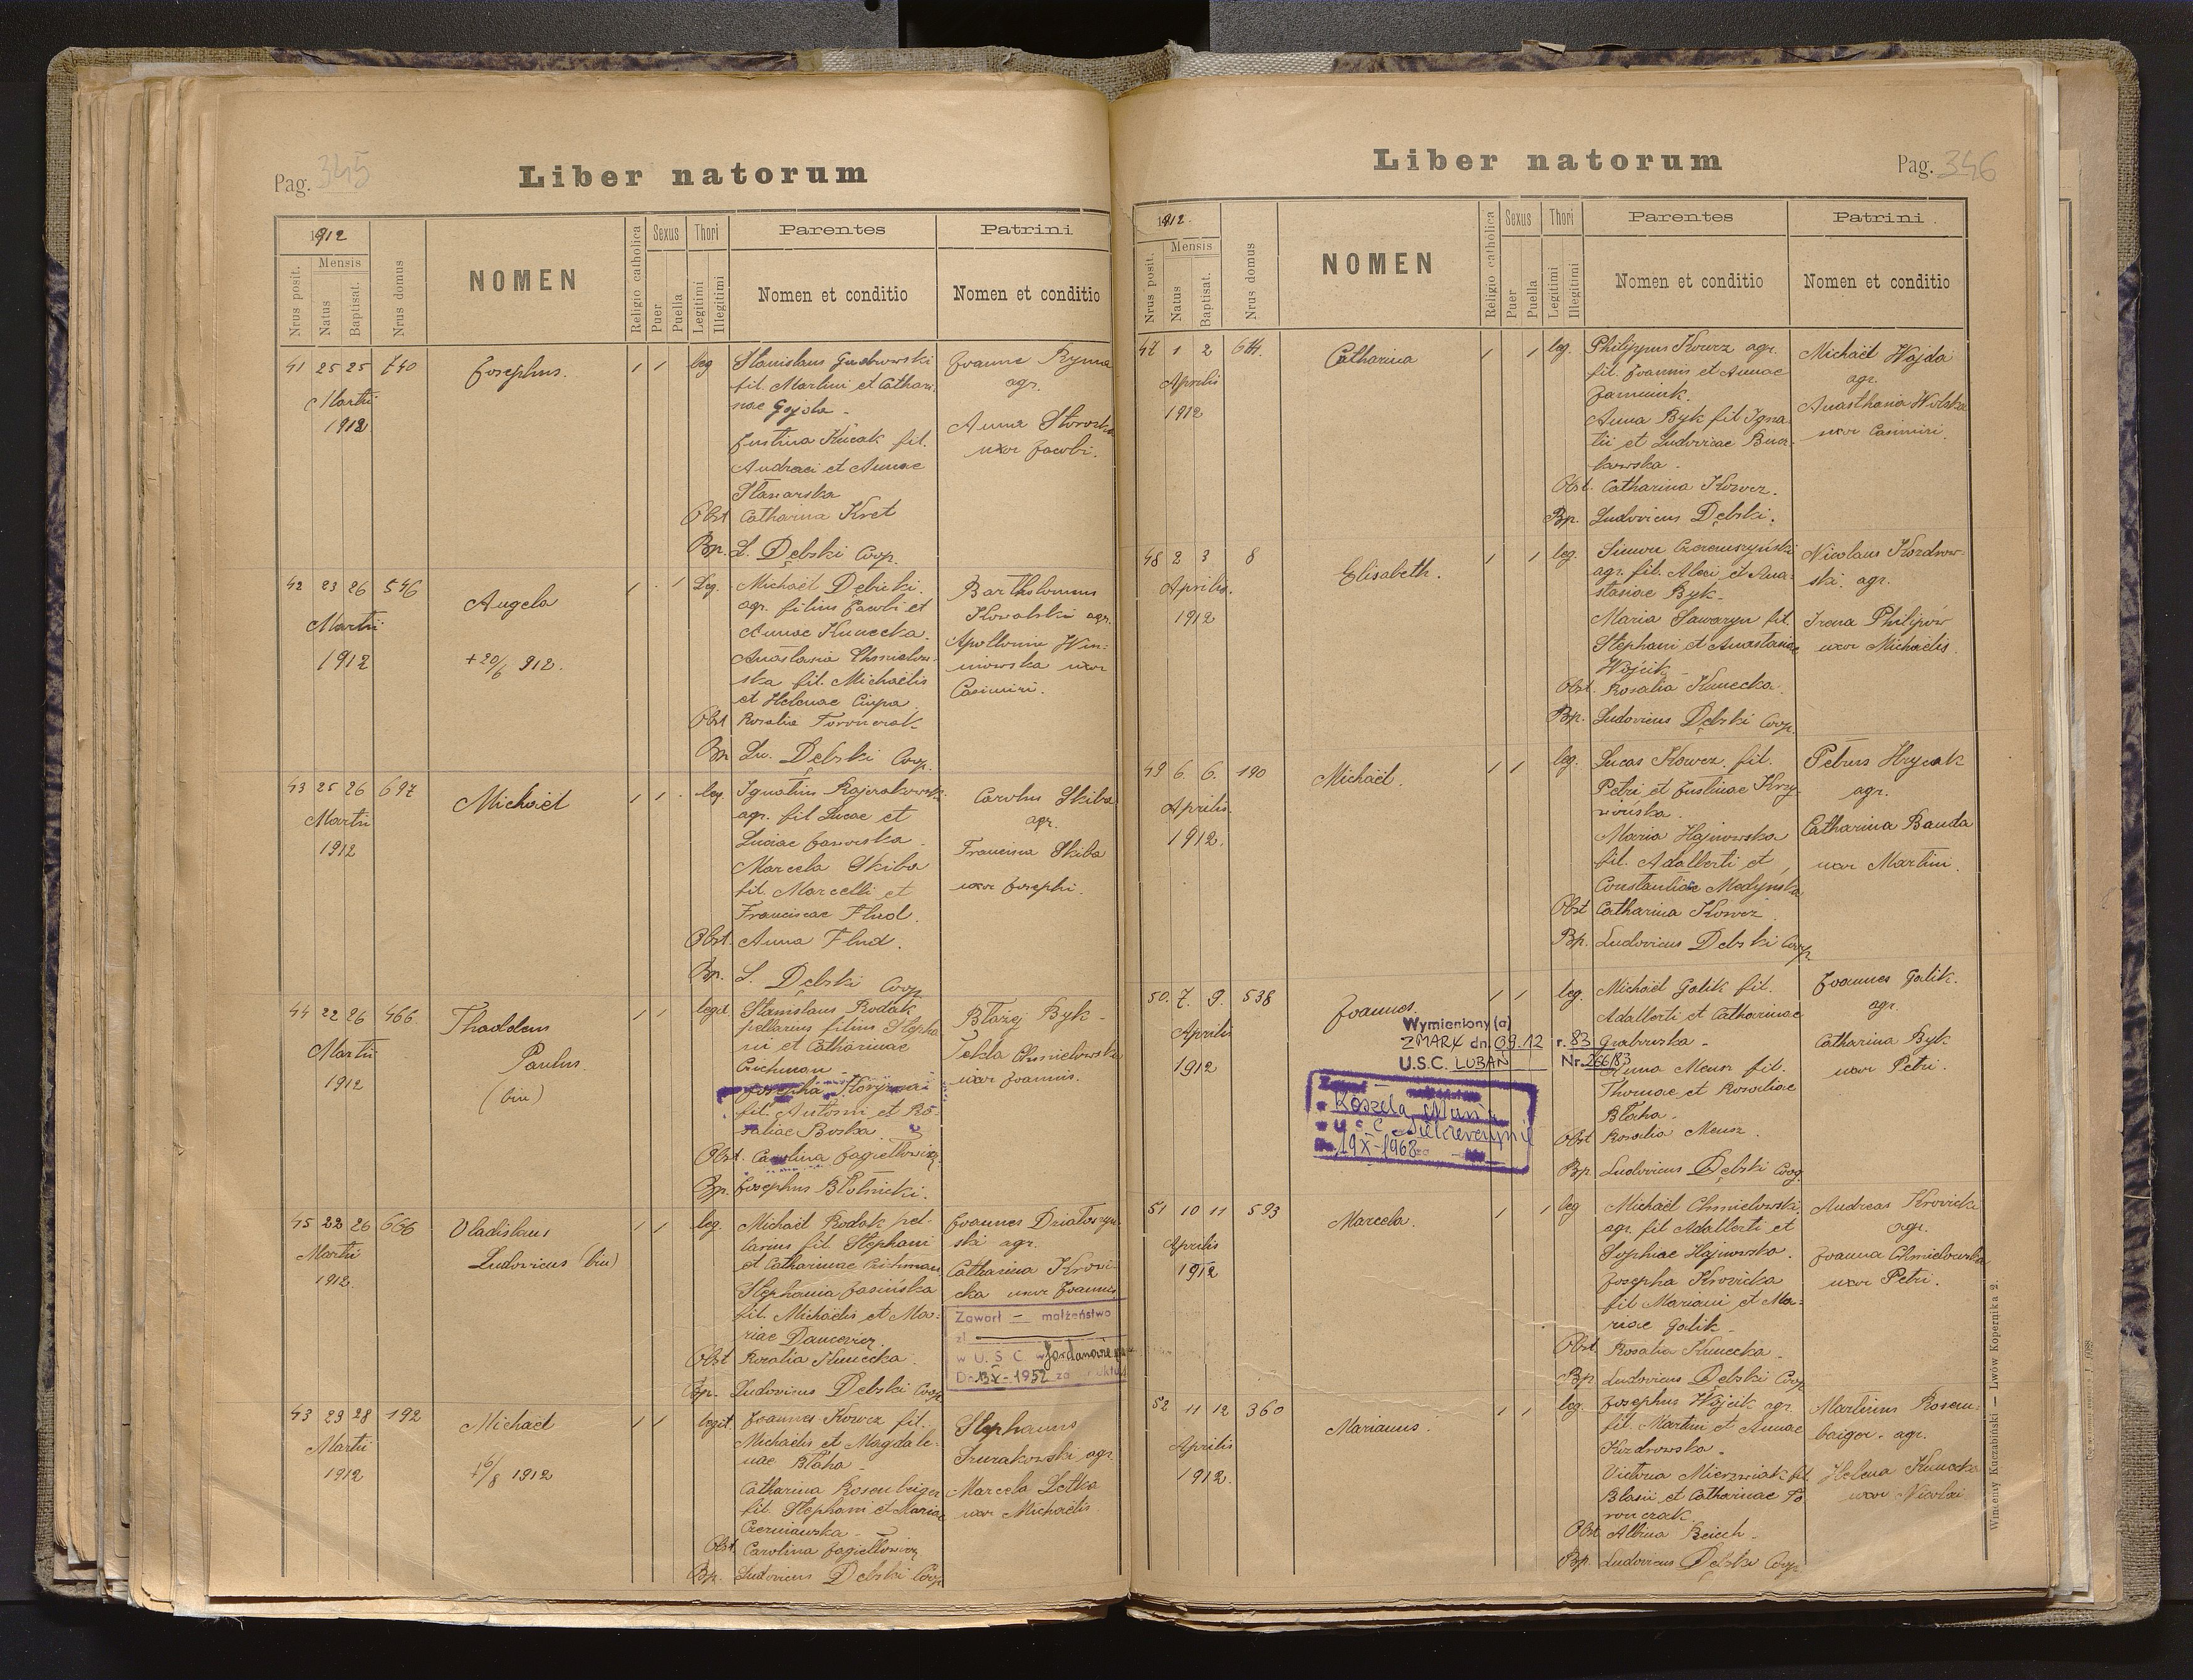 Pag. 345
Liber natorum
1912
Nrus posit.
Mensis
Natus
Baptisat.
Nrus domus
NOMEN
Religio catholica
Sexus
Puer
Puella
Thori
Legitimi
Illegitimi
Parentes
Nomen et conditio
Patrini
Nomen et conditio
41 25 25 740
Martii
1912
Josephus.
1 1
leg
Stanislaus
fil. Martini et Cathari
nae
Justina Kucak fil.
Andreae et Annae
Obst Catharina Kret
Bp. L. Dębski Coop.
Joanne Ryma
agr.
Anna
uxor Jacobi.
42 23 26 546
Martii
1912
Angela
+ 20/6 912.
1 1
Leg.
Michaël Dębicki
agr. filius Jacobi et
Annae Kunecka.
Anastasia Chmielow-
ska fil. Michaëlis
et Helenae Ciupa
Obst Rosalia Toronczak
Bp Lu. Dębski Coop.
Bartholomeus
Kowalski agr.
Apollonia Win-
niowska uxor
Casimiri.
43 25 26 697
Martii
1912
Michaël
1 1
leg.
Ignatius
agr. fil Lucae et
Luciae Jaworska
Marcela Skiba
fil. Marcelli et
Franciscae Flud.
Obst. Anna Flud.
Bp. L. Dębski Coop
Carolus Skiba
agr.
Francisca Skiba
uxor Josephi.
44 22 26 466
Martii
1912
Thaddeus
Paulus
(bin)
1 1
legit.
Stanislaus Rodak
pellarius filius Stepha
ni et Catharinae
Josepha
fil. Antoni et Ro-
saliae Boska
Obst. Carolina Jagiełłowicz
Bp. Josephus Błotnicki.
Błażej Byk -
Tekla Chmielowska
uxor Joannis.
45 22 26 666
Martii
1912
Vladislaus
Ludovicus (bin)
1 1
leg.
Michaël Rodak pel-
larius fil. Stephani
et Catharinae
Stephania Jasińska
fil. Michaëlis et Ma-
riae Dancewicz.
Obst Rosalia Kunecka.
Bp. Ludovicus Dębski Coop
Joannes Działoszyń
ski agr.
Catharina Krowi-
cka uxor Joannis
Zawarł — małżeństwo
z
w U. S. C. w Jordanowie
Dn. 1952 za
43 29 28 192
Martii
1912
Michaël
+ 6/8 1912
1 1
legit.
Joannes Kowcz fil.
Michaëlis et Magdale-
nae Błaha
Catharina Rosenbeiger
fil. Stephani et Mariae
Czerniawska
Obst. Carolina Jagiełłowicz
Bp. Ludovicus Dębski Coop
Stephanus
Furakowski agr.
Marcela Letka
uxor Michaëlis
Liber natorum
Pag. 346
1912
Nrus posit.
Mensis
Natus
Baptisat.
Nrus domus
NOMEN
Religio catholica
Sexus
Puer
Puella
Thori
Legitimi
Illegitimi
Parentes
Nomen et conditio
Patrini
Nomen et conditio
47 1 2
Aprilis
1912
Catharina
1 1
leg.
Philippus Kowcz agr.
fil. Joannis et Annae
Anna Byk fil Igna
tii et Ludovicae Bucz-
kowska.
Obst. Catharina Kowcz.
Bp. Ludovicus Dębski.
Michaël Wajda
agr.
Anasthasia Wolska
uxor Casimiri.
48 2 3 8
Aprilis.
1912
Elisabeth.
1 1
leg.
Simon
agr. fil. Alexi et Ana-
stasiae Byk.
Maria Sawaryn fil.
Stephani et Anastasiae
Wójcik
Obst. Rosalia Kunecka.
Bp. Ludovicus Dębski Coop.
Nicolaus Kozdrow-
ski. agr.
Irena Philipów
uxor Michaëlis.
49 6. 6. 190
Aprilis
1912.
Michaël.
1 1
leg.
Lucas Kowcz fil.
Petri et Justinae Krzy-
wińska.
Maria Hajnowska
fil. Adalberti et
Constantiae Medyńska
Obst Catharina Kowcz
Bp. Ludovicus Dębski Coop
Petrus Hrycak
agr.
Catharina Banda
uxor Martini.
50. 7. 9. 538
Aprilis
1912
Joannes.
Wymieniony (a)
ZMARŁ dn. 09.12 r. 83
U.S.C. LUBAŃ Nr. 266/83
Koszela Maria
w U S C
Dn. 19 X-1968
1 1
leg.
Michaël Galik fil.
Adalberti et Catharinae
Grabowska -
Anna Meusz fil.
Thomae et Rosaliae
Błaha.
Obst Rosalia Meusz
Bp. Ludovicus Dębski Coop.
Joannes Galik.
agr.
Catharina Byk
uxor Petri.
51 10 11 593
Aprilis
1912
Marcela.
1 1
leg
Michaël Chmielowski
agr. fil Adalberti et
Sophiae Hajnowska.
Josepha Krovicka
fil Mariani et Ma-
riae Galik
Obst Rosalia Kunecka.
Bp Ludovicus Dębski Coop
Andreas Krovicka
agr.
Joanna Chmielowska
uxor Petri.
52 11 12 360
Aprilis
1912.
Marianus.
1 1
leg.
Josephus Wójcik agr.
fil. Martini et Annae
Kozdrowska.
Victoria Mierzwiak fil.
Blasii et Catharinae To
ronczak.
Obst Albina
Bp. Ludovicus Dębski Coop
Martinus Rosen-
baiger. agr.
Helena Kunecka
uxor Nicolai
Wincenty Kuczabiński — Lwów Kopernika 2.